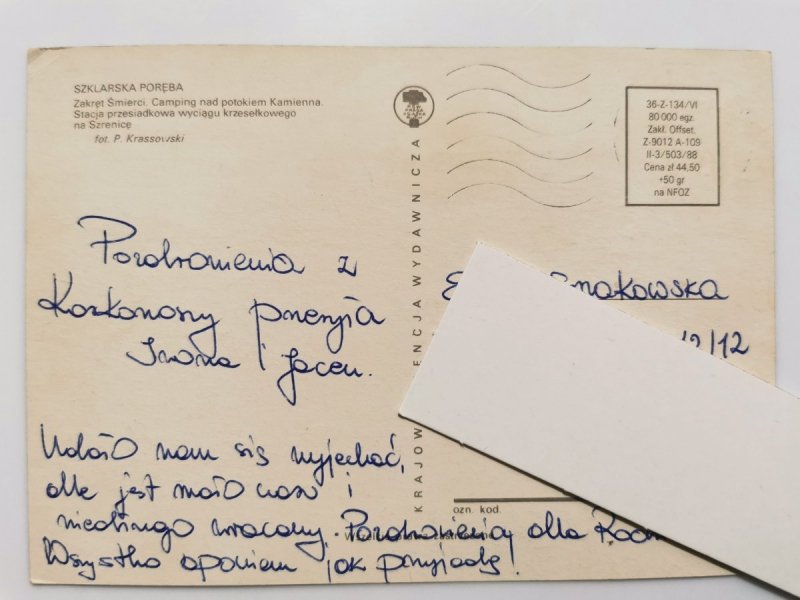 SZKLARSKA PORĘBA
Zakręt Śmierci. Camping nad potokiem Kamienna.
Stacja przesiadkowa wyciągu krzesełkowego
na Szrenicę
fot. P. Krassowski
36-Z-134/VI
80 000 egz.
Zakł. Offset.
Z-9012 A-109
II-3/503/88
Cena zł 44,50
+50 gr
na NFOZ
KRAJOW ENCJA WYDAWNICZA
Pozdrowienia z
Karkonoszy przesyła
Iwona i Jacek.
nakowska
12/12
Udało nam się wyjechać,
ale jest mało nas i
niedługo wracamy. Pozdrowienia dla
Wszystko opowiem jak przyjadę!
ozn. kod.